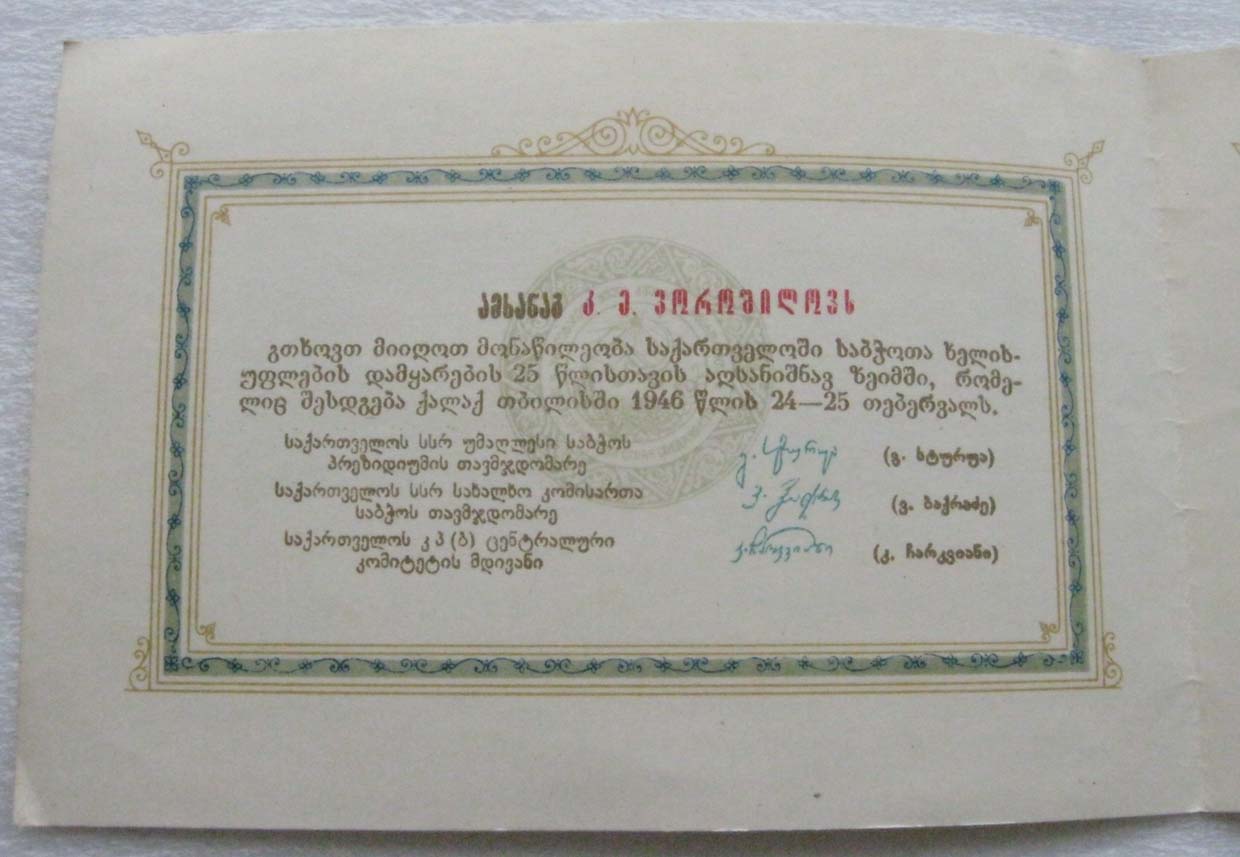 ამხანაგ კ. ე. ვოროშილოვს
გთხოვთ მიიღოთ მონაწილეობა საქართველოში საბჭოთა ხელის-
უფლების დამყარების 25 წლისთავის აღსანიშნავ ზეიმში, რომე-
ლიც შესდგება ქალაქ თბილისში 1946 წლის 24—25 თებერვალს.
საქართველოს სსრ უმაღლესი საბჭოს
პრეზიდიუმის თავმჯდომარე
გ. სტურუა (გ. სტურუა)
საქართველოს სსრ სახალხო კომისართა
საბჭოს თავმჯდომარე
ვ. ბაქრაძე (ვ. ბაქრაძე)
საქართველოს კ პ (ბ) ცენტრალური
კომიტეტის მდივანი
კ. ჩარკვიანი (კ. ჩარკვიანი)